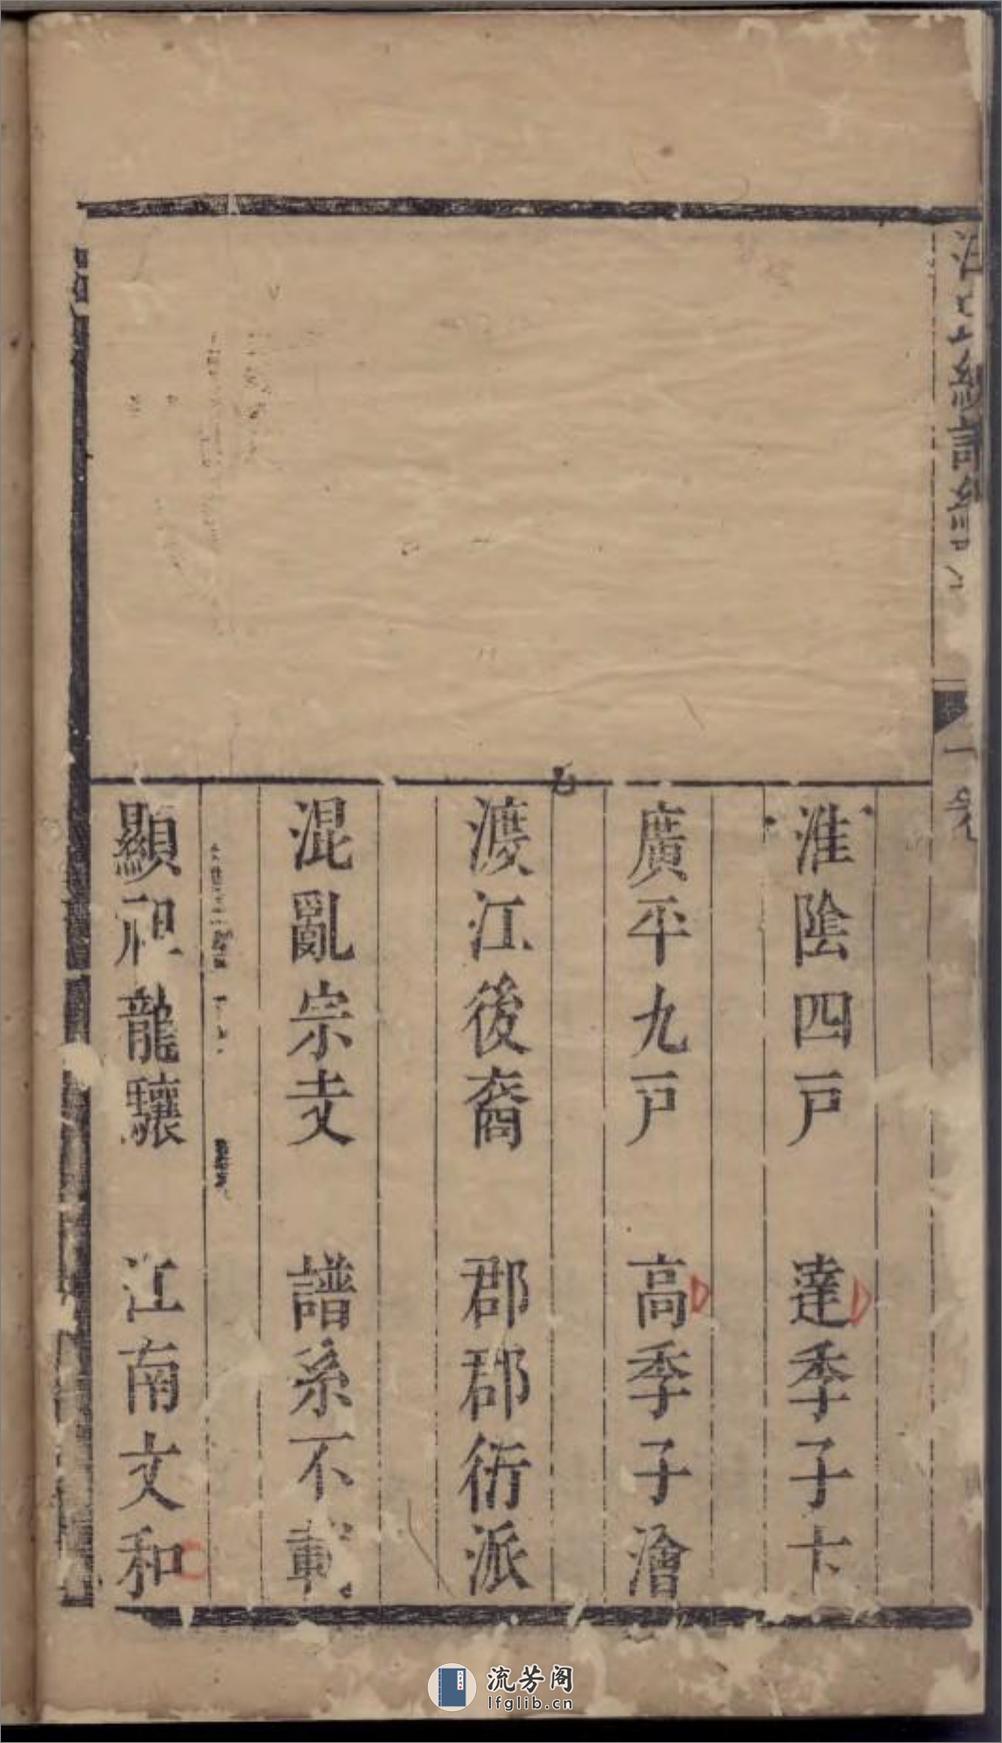 淮陰四戸　達季子卞
廣平九戸　高季子澮
渡江後裔　郡郡衍派
混亂宗支　譜系不載
顯祖龍驤　江南文和
一卷
流芳阁
lfglib.cn